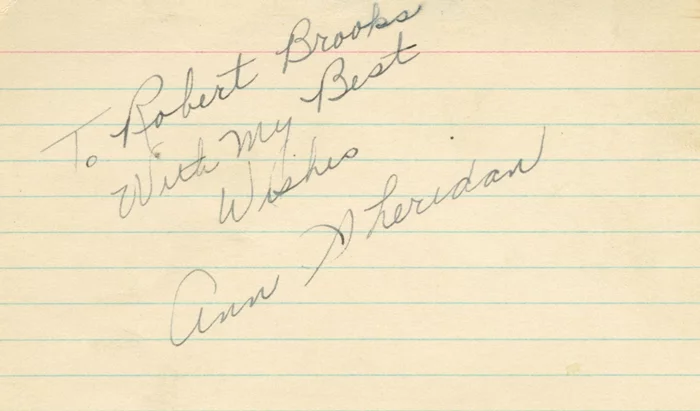 To Robert Brooks
With My Best
Wishes
Ann Sheridan